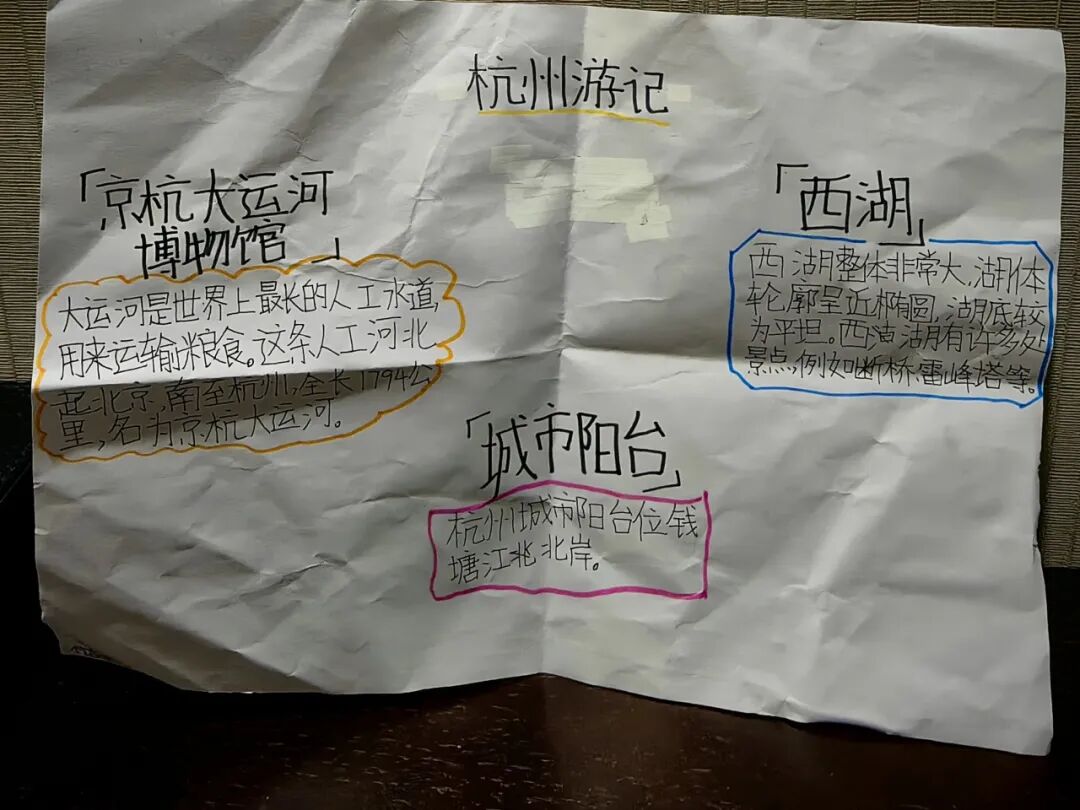 杭州游记
「京杭大运河
博物馆」
大运河是世界上最长的人工水道,
用来运输粮食。这条人工河北
起北京,南至杭州,全长1794公
里,名为京杭大运河。
「西湖」
西湖整体非常大,湖体
轮廓呈近椭圆,湖底较
为平坦。西湖有许多处
景点,例如断桥,雷峰塔等。
「城市阳台」
杭州城市阳台位钱
塘江北北岸。